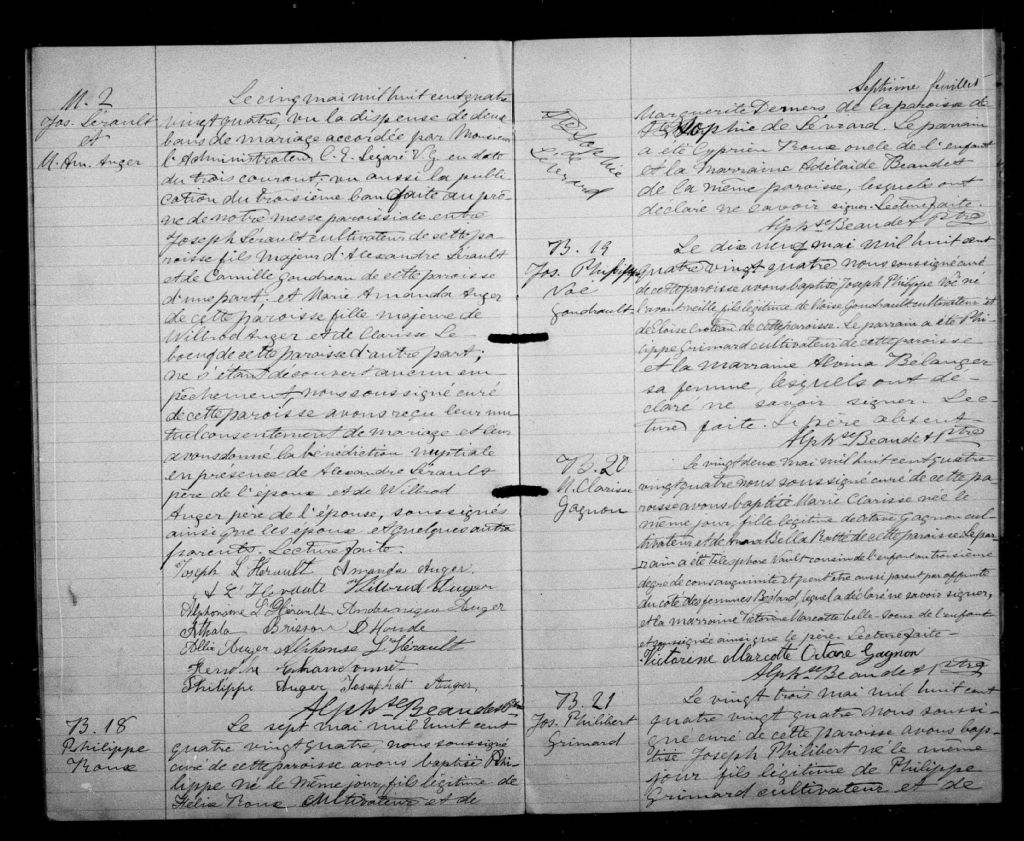 M. 2
Jos. Lérault
et
M. Am. Auger
Le cinq mai mil huit cent quatre
vingt quatre, vu la dispense de deux
bans de mariage accordée par Monsieur
l'Administrateur C. E. Légaré V.G. en date
du trois courant, vu aussi la publi
cation du troisième ban faite au prô-
ne de notre messe paroissiale entre
Joseph Lérault cultivateur de cette pa
roisse fils majeur d'Alexandre Lérault
et de Camille Gaudreau de cette paroisse
d'une part, et Marie Amanda Auger
de cette paroisse fille majeure de
Wilbrod Auger et de Clarisse Le
boeuf de cette paroisse d'autre part;
ne s'étant découvert aucun em-
pêchement, nous soussigné curé
de cette paroisse avons reçu leur mu
tuel consentement de mariage et leur
avons donné la bénédiction nuptiale
en présence de Alexandre Lérault
père de l'époux et de Wilbrod
Auger père de l'épouse, soussignés
ainsi que les époux et quelques autres
parents. Lecture faite.
Joseph L'Hérault Amanda Auger
Wilbrod Auger
Alphonsine L'Hérault Auger
Brisson D Houde
Auger Alphonse L'Hérault
Philippe Auger Auger
Alph.se Beaudet Ptre
B. 18
Philippe
Roux
Le sept mai mil huit cent
quatre vingt quatre, nous soussigné
curé de cette paroisse avons baptisé Phi-
lippe né le même jour, fils légitime de
Félix Roux cultivateur et de
Septième feuillet
Ste Sophie
de
Lévrard
Marguerite Demers de la paroisse de
Ste Sophie de Lévrard. Le parrain
a été Cyprien Roux oncle de l'enfant
et la marraine Adélaide Beaudet
de la même paroisse, lesquels ont
déclaré ne savoir signer. Lecture faite.
Alph.se Beaudet Ptre
B. 19
Jos. Philippe
Noé
Gaudrault
Le dix neuf mai mil huit cent
quatre vingt quatre nous soussigné curé
de cette paroisse avons baptisé Joseph Philippe Noé né
l'avant veille, fils légitime de Gaudrault cultivateur et
de Eloise Croteau de cette paroisse. Le parrain a été Phi-
lippe Grimard cultivateur de cette paroisse
et la marraine Alvina Bélanger
sa femme, lesquels ont dé-
claré ne savoir signer. Lec-
ture faite. Le père absent
Alph.se Beaudet Ptre
B. 20
M. Clarisse
Gagnon
Le vingt deux mai mil huit cent quatre
vingt quatre nous soussigné curé de cette pa
roisse avons baptisé Marie Clarisse née le
même jour, fille légitime de Octave Gagnon cul-
tivateur et de de cette paroisse. Le par
rain a été Télesphore Vault cousin de l'enfant au troisième
degré de consanguinité et peut être aussi parent par
du côté des femmes lequel a déclaré ne savoir signer,
et la marraine Victorine Marcotte belle-soeur de l'enfant
soussignée ainsi que le père. Lecture faite—
Victorine Marcotte Octave Gagnon
Alph.se Beaudet Ptre
B. 21
Jos. Philibert
Grimard
Le vingt trois mai mil huit cent
quatre vingt quatre nous soussi-
gné curé de cette paroisse avons bap-
tisé Joseph Philibert né le même
jour fils légitime de Philippe
Grimard cultivateur et de